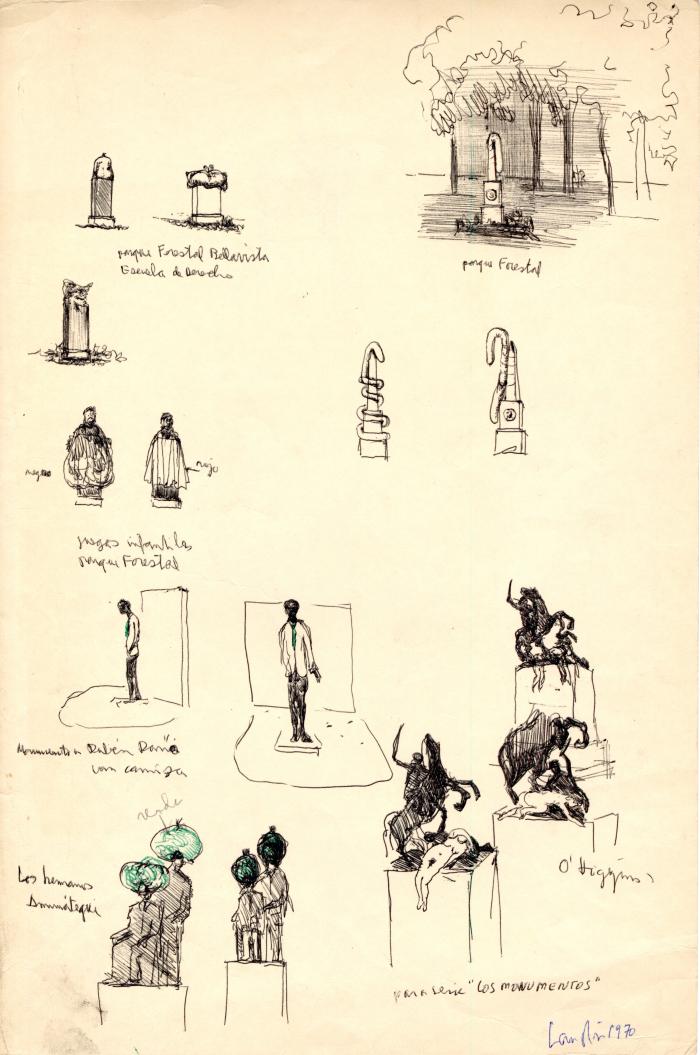 parque Forestal Bellavista
Escuela de Derecho
parque Forestal
negro
rojo
juegos infantiles
parque Forestal
Monumento a Rubén Darío
con camisa
verde
Los hermanos
Amunátegui
O'Higgins
para serie "LOS MONUMENTOS"
1970